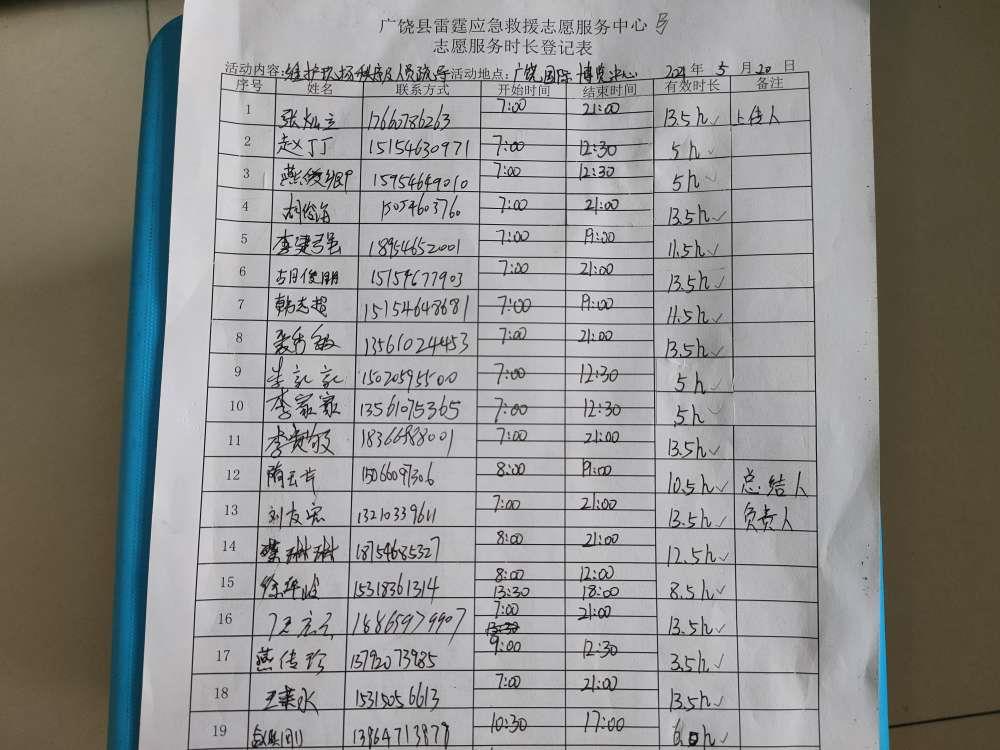 广饶县雷霆应急救援志愿服务中心
志愿服务时长登记表
活动内容:维护现场秩序及人员疏导 活动地点:广饶国际博览中心 2021年5月20日
序号 姓名 联系方式 开始时间 结束时间 有效时长 备注
1 张灿立 17660786263 7:00 21:00 13.5h✓ 上传人
2 赵丁丁 15154630971 7:00 12:30 5h✓
3 燕 15954649010 7:00 12:30 5h✓
4 胡俊海 15054603760 7:00 21:00 13.5h✓
5 李建强 18954652001 7:00 19:00 11.5h✓
6 胡俊朋 15154677903 7:00 21:00 13.5h✓
7 韩志超 15154648681 7:00 19:00 11.5h✓
8 秀敏 13561024453 7:00 21:00 13.5h✓
9 15020595500 7:00 12:30 5h✓
10 李家家 13561075365 7:00 12:30 5h✓
11 李 18366988001 7:00 21:00 13.5h✓
12 隋云 15066091306 8:00 19:00 10.5h✓ 总结人
13 刘友宏 13210339611 7:00 21:00 13.5h✓ 负责人
14 琳琳 18754685327 8:00 21:00 12.5h✓
15 徐 15318361314 8:00 12:00 8.5h✓
13:30 18:00
16 18865979907 7:00 21:00 13.5h✓
17 燕传珍 13792073985 9:00 12:30 3.5h✓
18 王 15315056613 7:00 21:00 13.5h✓
19 13864713879 10:30 17:00 6h✓